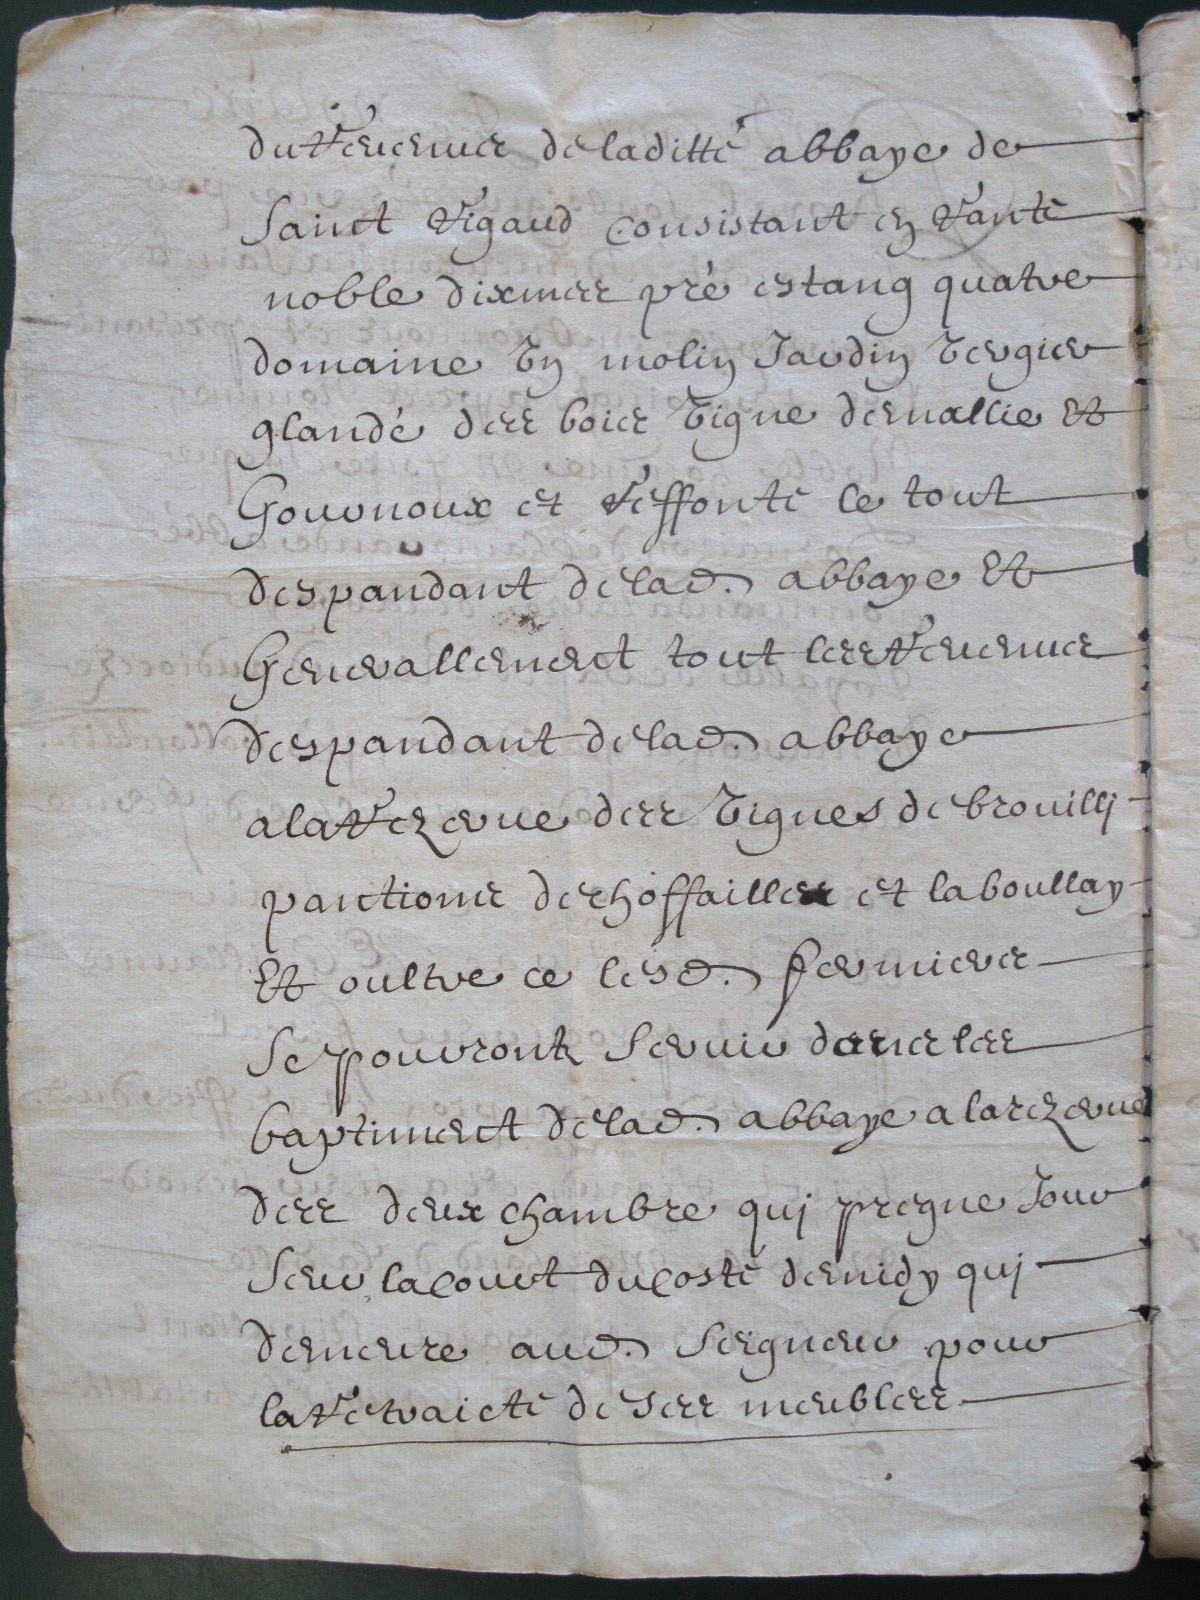 du Revenue de laditte abbaye de
Saint Rigaud Consistant en Rante
noble dixmes pré estang quatre
domaine Un molin Jardin Vergier
glandé des bois Vigne denallie Et
Gournoux et Reffonte le tout
despandant de lad. abbaye Et
Generallement tout les Revenues
despandant de lad. abbaye
a la Rezerve des Vignes de brouilli
panctions dechoffailles et la boullay
Et oultre ce lesd. fermiers
Se pouvront Servir de les
baptiment de lad. abbaye a la rezerve
des deux chambre quj pregne Jour
Seur la Court du Coste de midy quj
demeure aud. Seigneur pour
la Retraicte de Ses meubles